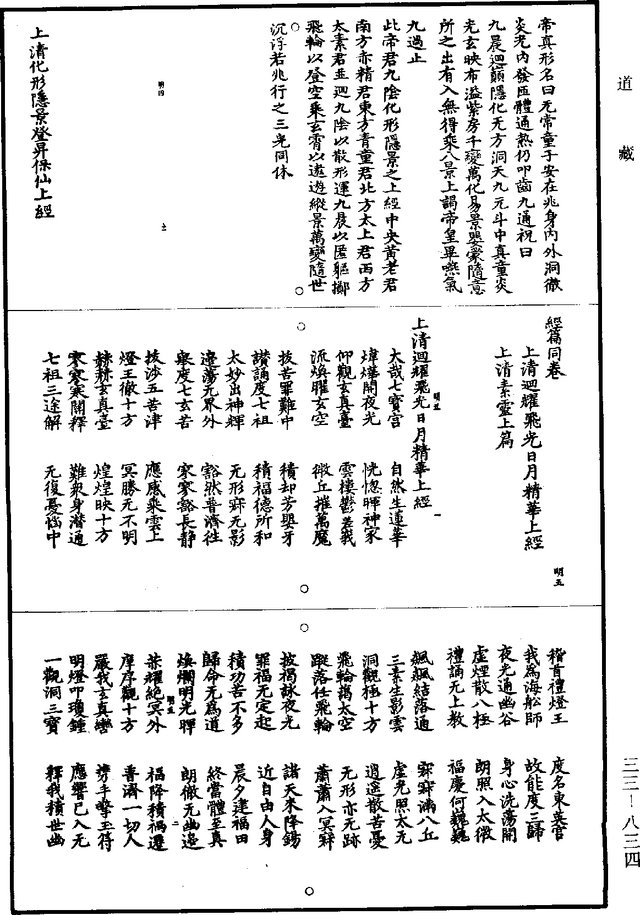 道藏
帝真形名曰无常童子安在兆身內外洞徹
炎光內發匝體通熱仍叩齒九通祝曰
九晨迴巔隱化无方洞天九元斗中真童炎
光玄映布溢紫房千變萬化易景嬰蒙隨意
所之出有入無得乘八景上謁帝皇畢嚥氣
九過止
此帝君九陰化形隱景之上經中央黃老君
南方赤精君東方青童君北方太上君西方
太素君並迴九陰以散形運九晨以匿軀擲
飛輪以登空乘玄霄以遨遊縱景萬變隨世
沉浮若兆行之三光同休
明四
上清化形隱景登昇保仙上經
經篇同卷
上清迴耀飛光日月精華上經
上清素靈上篇
明五
上清迴耀飛光日月精華上經
明五 一
太哉七寶宮 自然生蓮華
煒燁開夜光 恍惚暉神家
仰觀玄真臺 雲樓鬱嵳峩
流煥曜玄空 徹丘摧萬魔
拔苦罪難中 積却芳嬰牙
讚誦度七祖 積福德所和
太妙出神輝 无形寂无影
邊蕩无界外 豁然普濟往
衆度七玄苦 寥寥豁長静
拔涉五苦津 應感乘雲上
燈王徹十方 冥勝无不明
赫赫玄真臺 煌煌映十方
寥寥寒關釋 難衆身潜通
七祖三途解 无復憂惱中
稽首禮燈王 度名東華宮
我爲海船師 故能度三歸
夜光通幽谷 身心洗蕩開
虚煙散八極 朗照入太微
禮誦无上教 福慶何巍巍
飆飆結落通 寂寂滿八丘
三素生影雲 虚光照太元
洞觀極十方 逍遥散苦憂
飛輪揭太空 无形亦无跡
蹤落任飛輪 蕭蕭入冥寂
披褐詠夜光 諸天來降錫
罪福无定起 近自由人身
積功苦不多 晨夕建福田
歸命无爲道 終當體至真
煥爛明光暉 朗徹无幽邊
明五 二
榮耀絶冥外 福降積禍遷
摩序觀十方 普濟一切人
嚴我玄真轡 携手擊玉符
明燈叩瓊鍾 應響已入无
一觀洞三寶 釋我積世幽
三三—八三四